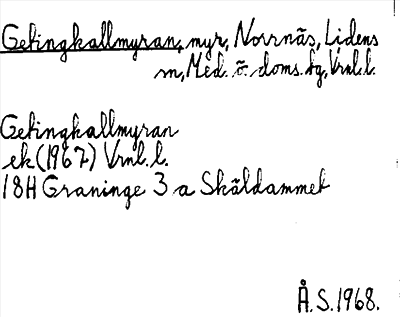 Getingkallmyran, myr, Norrnäs, Lidens
sn, Med. ö. doms. tg, Vrnl. l.
Getingkallmyran
ek (1967) Vrnl. l.
18H Graninge 3 a Skäldammet
Å.S. 1968.